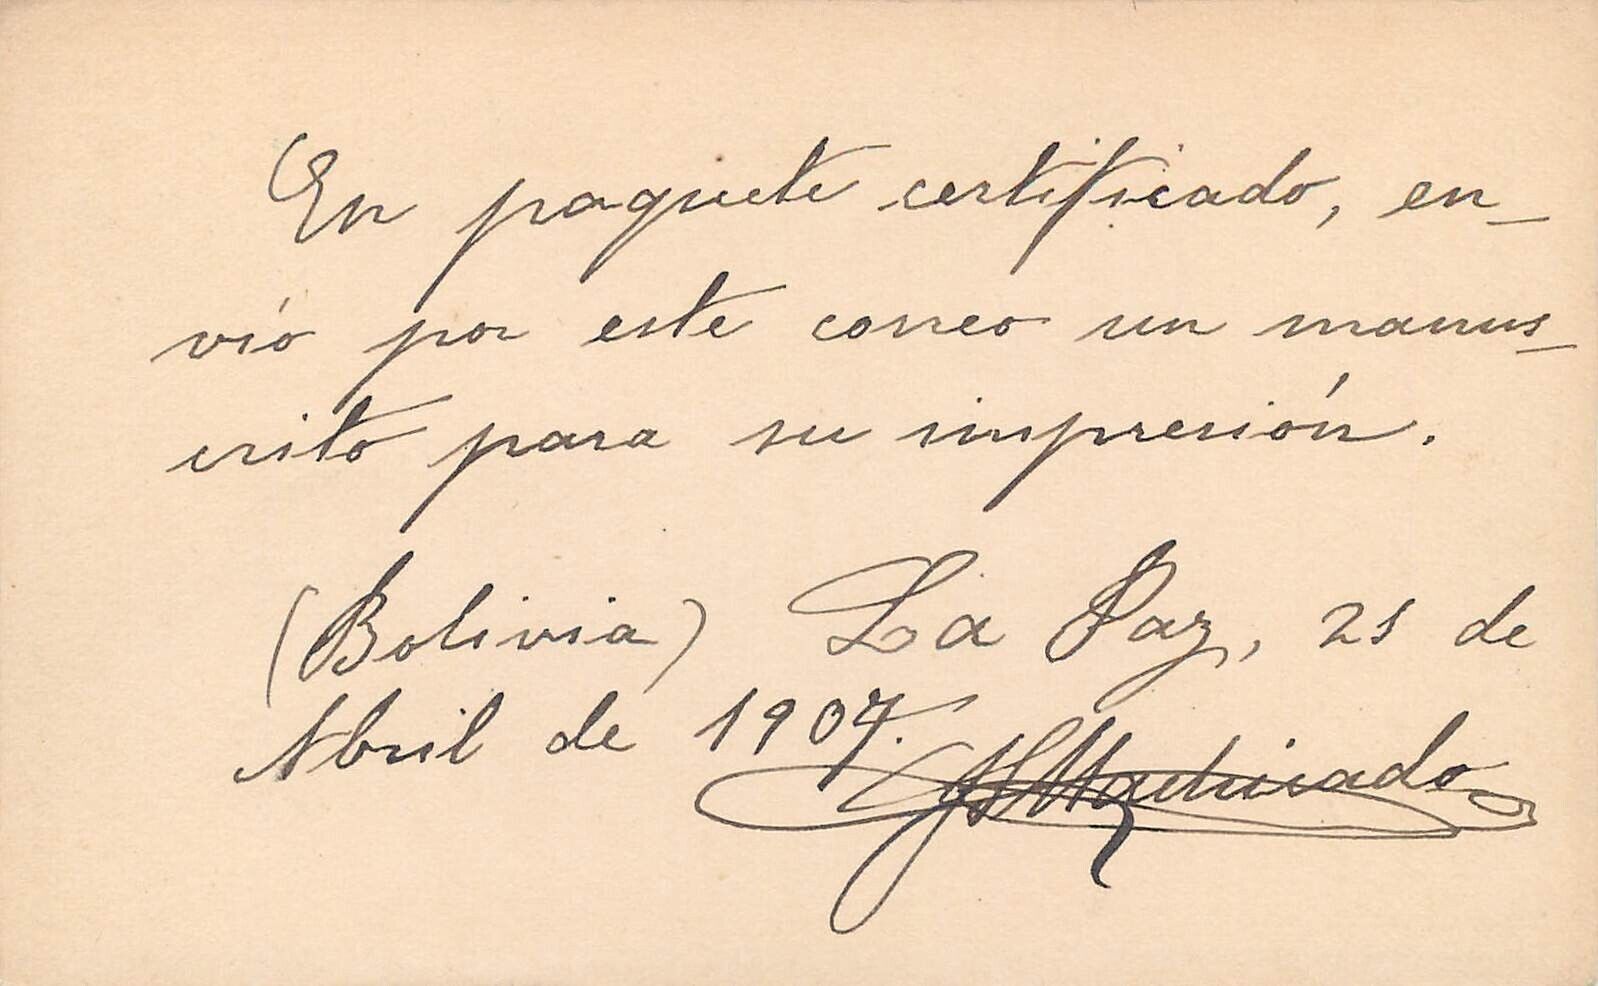 En paquete certificado, en_
vío por este correo un manus_
crito para su impresión.
(Bolivia) La Paz, 21 de
Abril de 1907.